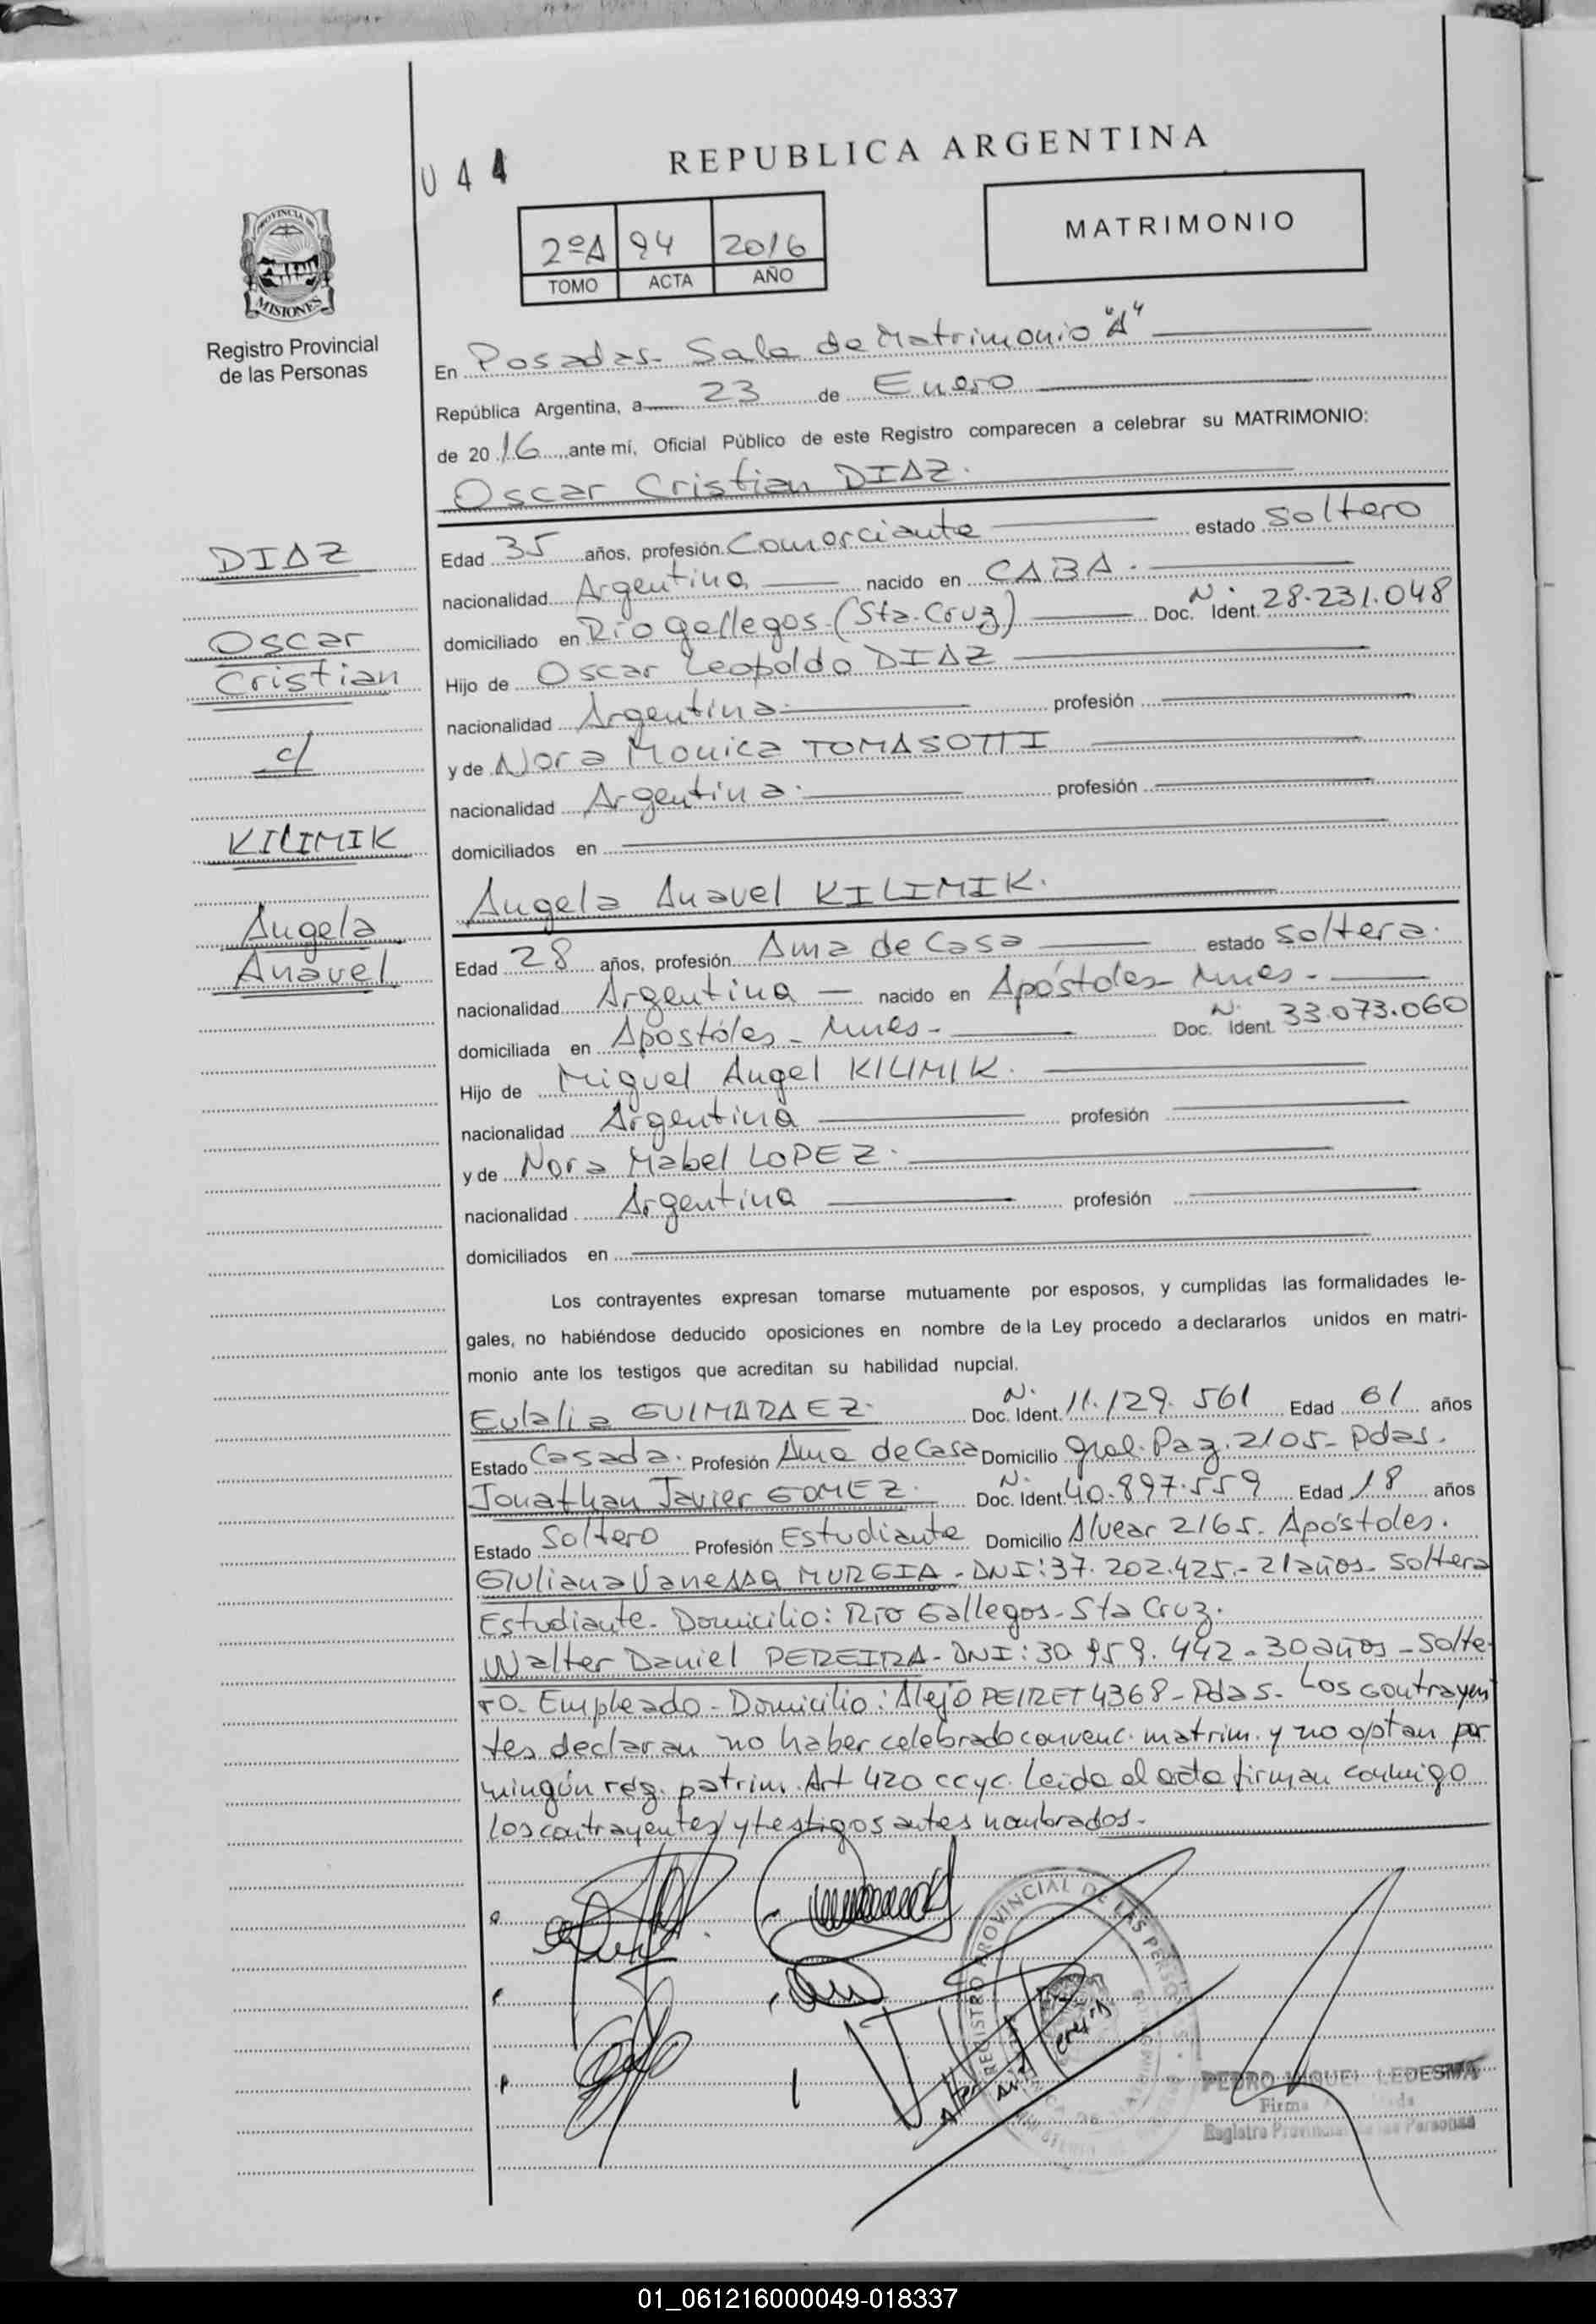 044
REPUBLICA ARGENTINA
PROVINCIA DE
MISIONES
Registro Provincial
de las Personas
2ºA 94 2016
TOMO ACTA AÑO
MATRIMONIO
En Posadas- Sala de Matrimonio "A"
República Argentina, a 23 de Enero
de 2016 ante mí, Oficial Público de este Registro comparecen a celebrar su MATRIMONIO:
Oscar Cristian DIAZ.
DIAZ
Oscar
Cristian
c/
KILIMIK
Angela
Anavel
Edad 35 años, profesión Comerciante estado Soltero
nacionalidad Argentina nacido en CABA.
domiciliado en Río Gallegos (Sta. Cruz) Doc. N. Ident. 28.231.048
Hijo de Oscar Leopoldo DIAZ
nacionalidad Argentina profesión
y de Nora Monica TOMASOTTI
nacionalidad Argentina. profesión
domiciliados en
Angela Anavel KILIMIK.
Edad 28 años, profesión Ama de Casa estado Soltera.
nacionalidad Argentina nacido en Apóstoles- Mnes-
domiciliada en Apóstoles- Mnes- Doc. N. Ident. 33.073.060
Hijo de Miguel Angel KILIMIK.
nacionalidad Argentina profesión
y de Nora Mabel LOPEZ.
nacionalidad Argentina profesión
domiciliados en
Los contrayentes expresan tomarse mutuamente por esposos, y cumplidas las formalidades le-
gales, no habiéndose deducido oposiciones en nombre de la Ley procedo a declararlos unidos en matri-
monio ante los testigos que acreditan su habilidad nupcial.
Eulalia GUIMARAEZ. Doc. N. Ident. 11.129.561 Edad 61 años
Estado Casada. Profesión Ama de Casa Domicilio Gral. Paz. 2105- Pdas.
Jonathan Javier GOMEZ. Doc. N. Ident. 40.897.559 Edad 18 años
Estado Soltero Profesión Estudiante Domicilio Alvear 2165. Apóstoles.
Giuliana Vanessa MURGIA- DNI: 37.202.425.- 21 años- Soltera
Estudiante- Domicilio: Río Gallegos- Sta Cruz.
Walter Daniel PEREIRA- DNI: 30.959.442- 30 años- Solte-
ro. Empleado- Domicilio: Alejo PEIRET 4368- Pdas- Los contrayen
tes declaran no haber celebrado convenc. matrim. y no optan por
ningún rég. patrim. Art 420 ccyc. Leída el acta firman conmigo
los contrayentes y testigos antes nombrados-
REGISTRO PROVINCIAL DE LAS PERSONAS
PEDRO MIGUEL LEDESMA
Firma
Registro Provincial de las Personas
01_061216000049-018337